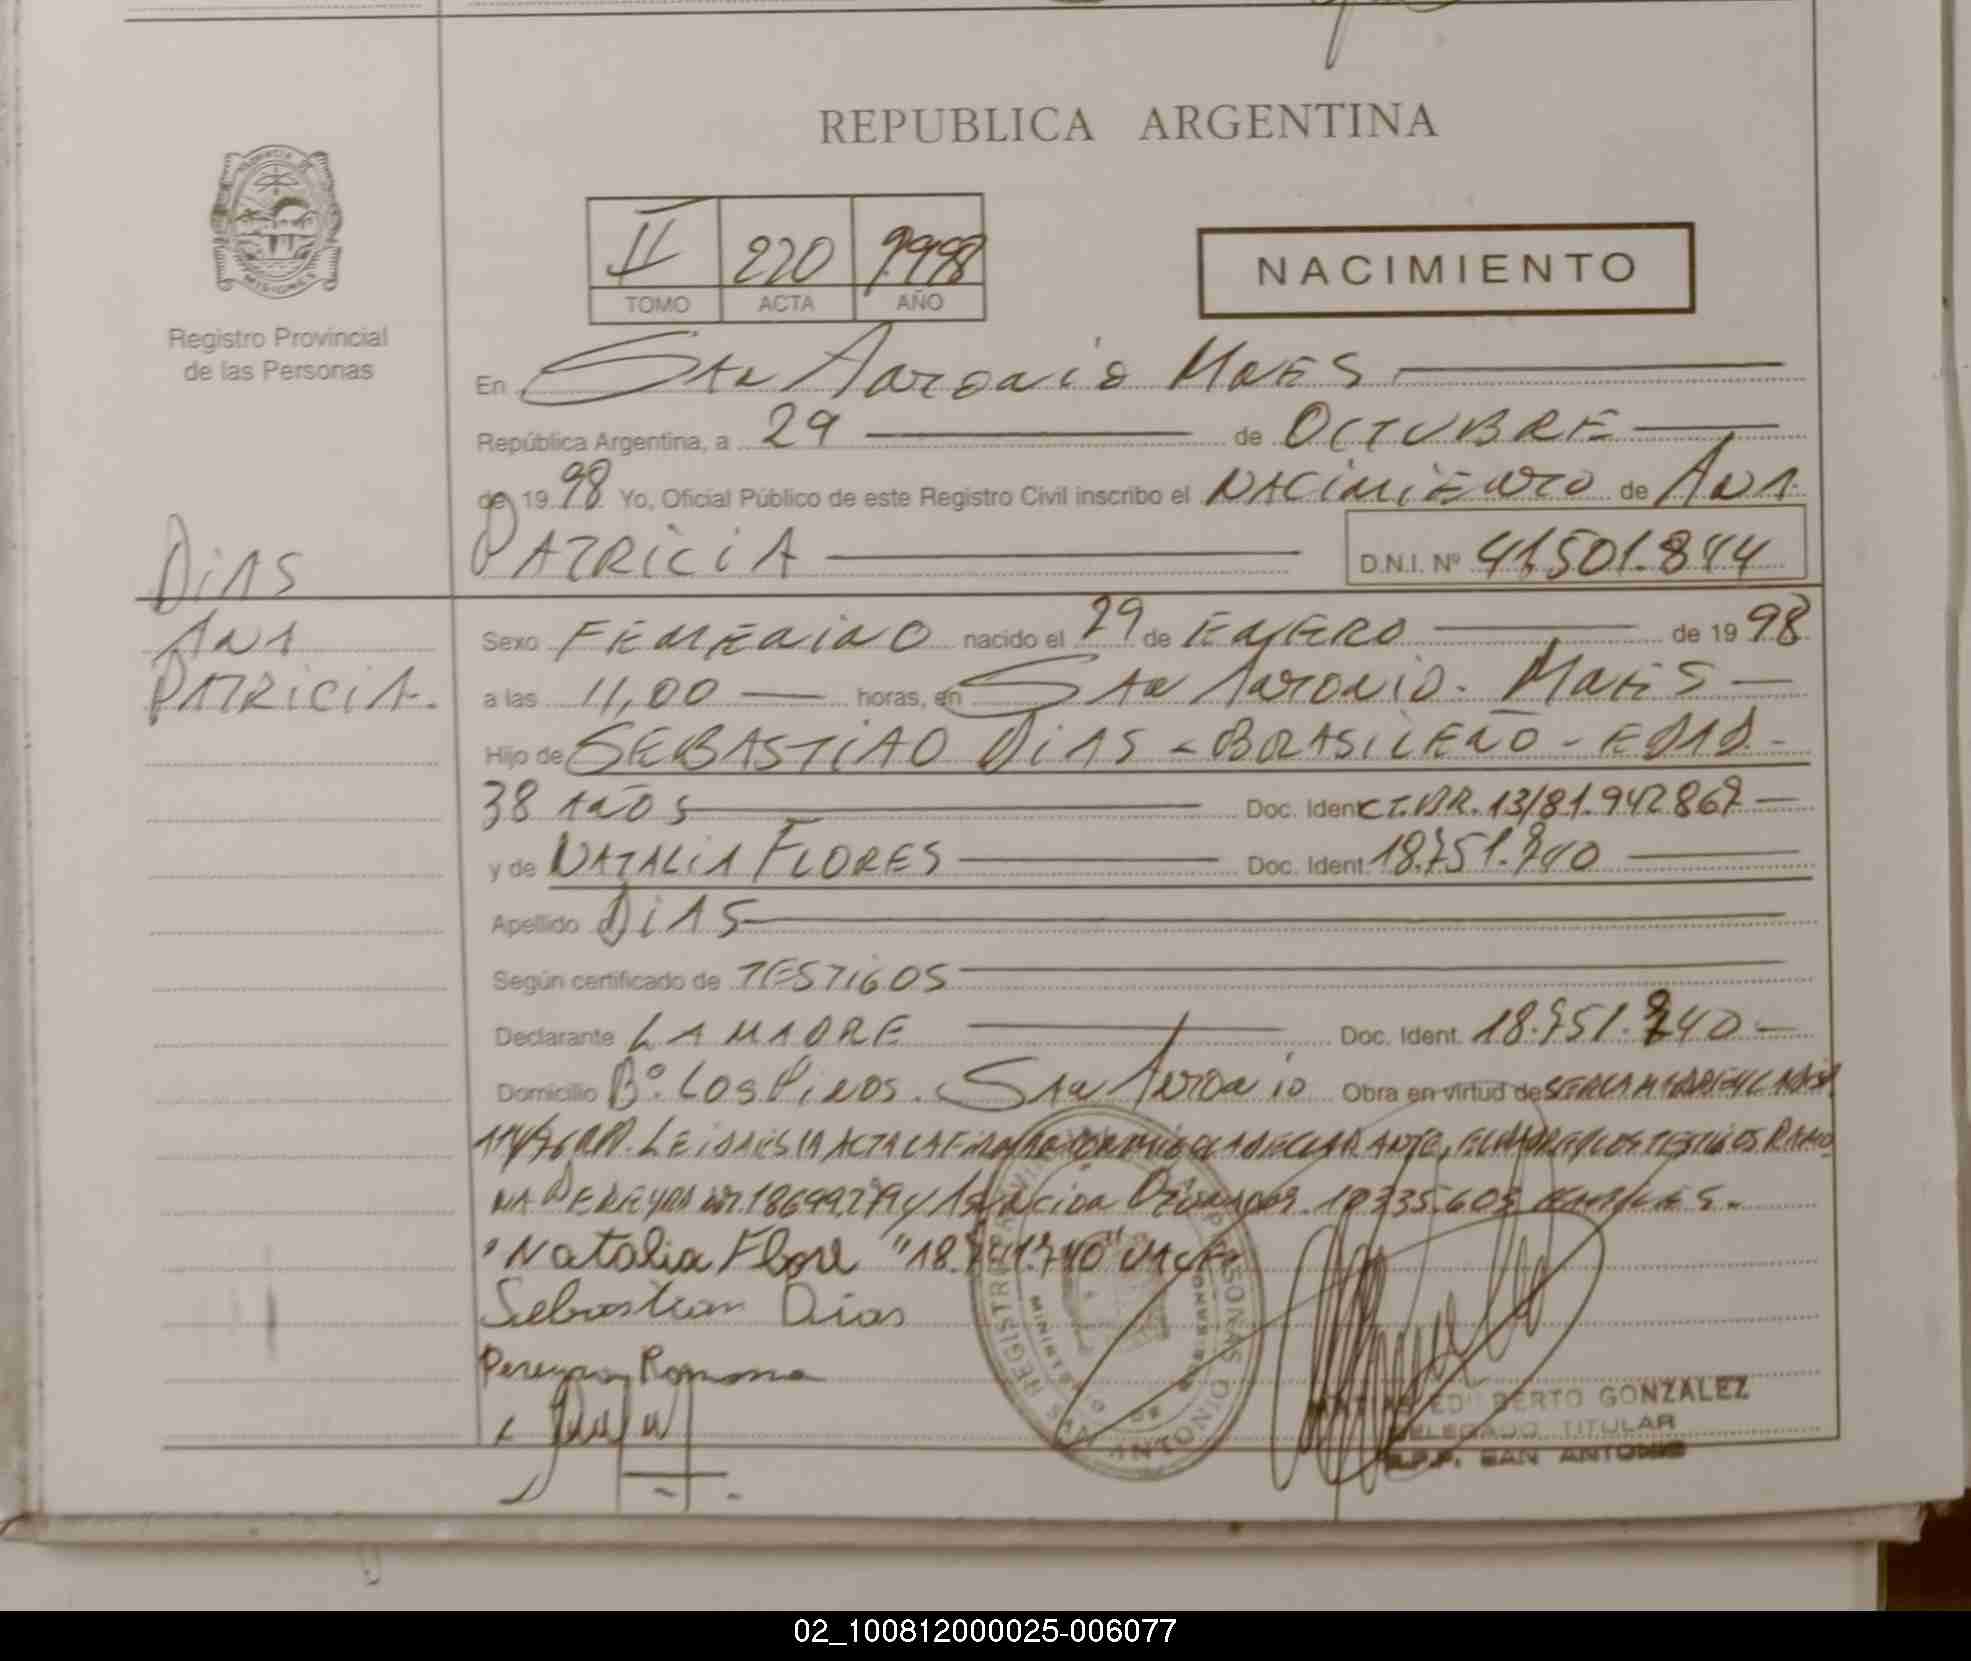 REPUBLICA ARGENTINA
Registro Provincial
de las Personas
II 220 1998
TOMO ACTA AÑO
NACIMIENTO
En San Antonio Mnes
República Argentina, a 29 de OCTUBRE
de 1998 Yo, Oficial Público de este Registro Civil inscribo el NACIMIENTO de ANA
PATRICIA D.N.I. Nº 41.501.844
DIAS
ANA
PATRICIA.
Sexo FEMENINO nacido el 29 de ENERO de 1998
a las 11,00 horas, en San Antonio. Mnes
Hijo de SEBASTIAO DIAS - BRASILEÑO - EDAD -
38 AÑOS Doc. Ident
y de NATALIA FLORES Doc. Ident. 18.751.740
Apellido DIAS
Según certificado de TESTIGOS
Declarante LA MADRE Doc. Ident. 18.751.740
Domicilio Bº. Los Pinos. San Antonio Obra en virtud de
LEIDA ESTA ACTA LA FIRMAN CONMIGO LA DECLARANTE, EL PADRE Y LOS TESTIGOS RAMO
NA PEREYRA
Natalia Flore
Sebastian Dias
Pereyra Ramona
GONZALEZ
DELEGADO TITULAR
R.P.P. SAN ANTONIO
02_100812000025-006077